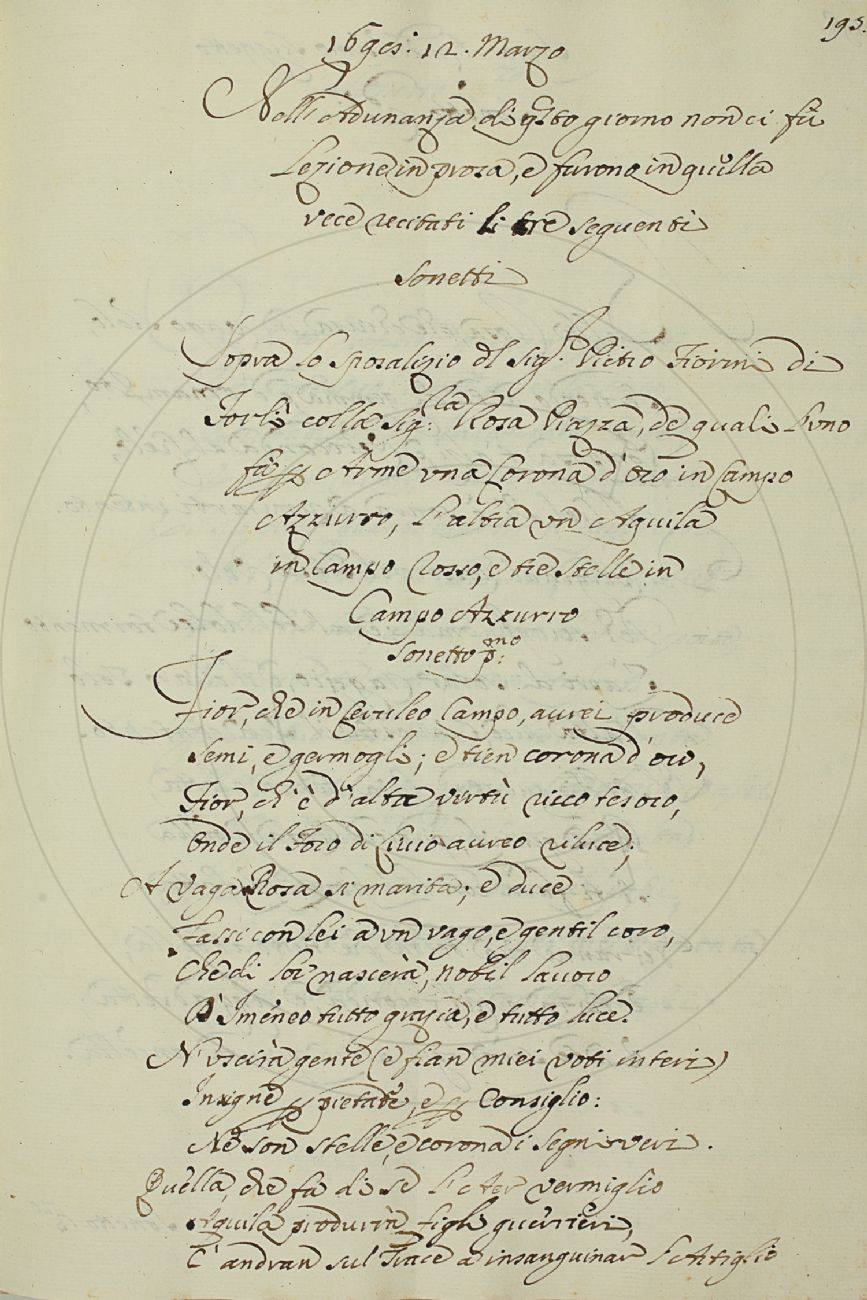 193.
12. Marzo
Nell'Adunanza di q̃sto giorno non ci fù
Lezione in prosa, e furono in quella
vece recitati li tre seguenti
Sonetti
Sopra lo sposalizio del Sig.r Pietro Fiorini di
Forlì colla Sig.la Rosa Piazza, de quali l'uno
fà p Arme una Corona d'oro in Campo
Azzurro, l'altra un Aquila
in Campo Rosso, e tre Stelle in
Campo Azzurro
Sonetto p.mo
Fior, che in Ceruleo Campo, aurei produce
semi, e germogli; e tien corona d'oro,
Fior, ch'è d'alta virtù ricco tesoro,
Onde il Foro di Livio aureo riluce;
A vaga Rosa si marita; e duce
Fassi con lei a un vago, e gentil coro,
Che di lor nascerà, nobil lavoro
D'Imeneo tutto grazia, e tutto luce.
N'uscirà gente (e fian miei voti interi)
Insigne p pietate, e p Consiglio:
Ne son stelle, e corona i segni veri.
Quella, che fa di se l'Aer vermiglio
Aquila produrrà figli guerrieri,
C'andran sul Trace a insanguinar l'Artiglio